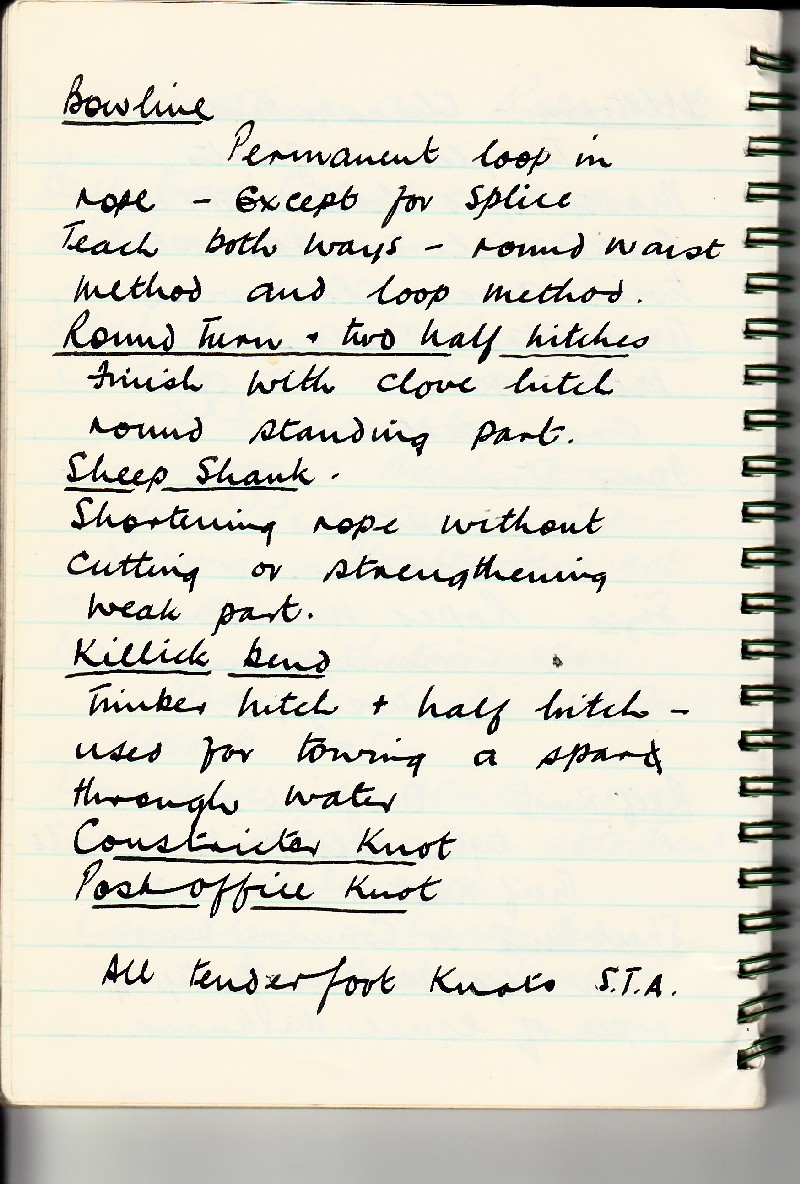 Bowline
Permanent loop in
rope - Except for Splice
Teach both ways - round waist
method and loop method.
Round Turn + two half hitches
finish with clove hitch
round standing part.
Sheep Shank.
Shortening rope without
cutting or strengthening
weak part.
Killick bend
Timber hitch + half hitch -
used for towing a spar
through water
Constricter Knot
Post office Knot
All tenderfoot Knots S.T.A.